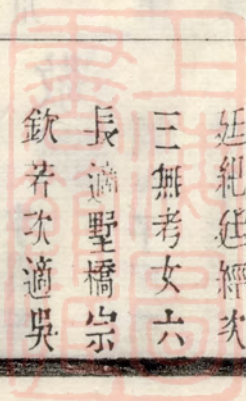 廷紀廷經次
三無考女六
長適墅橋宗
欽若次適吳